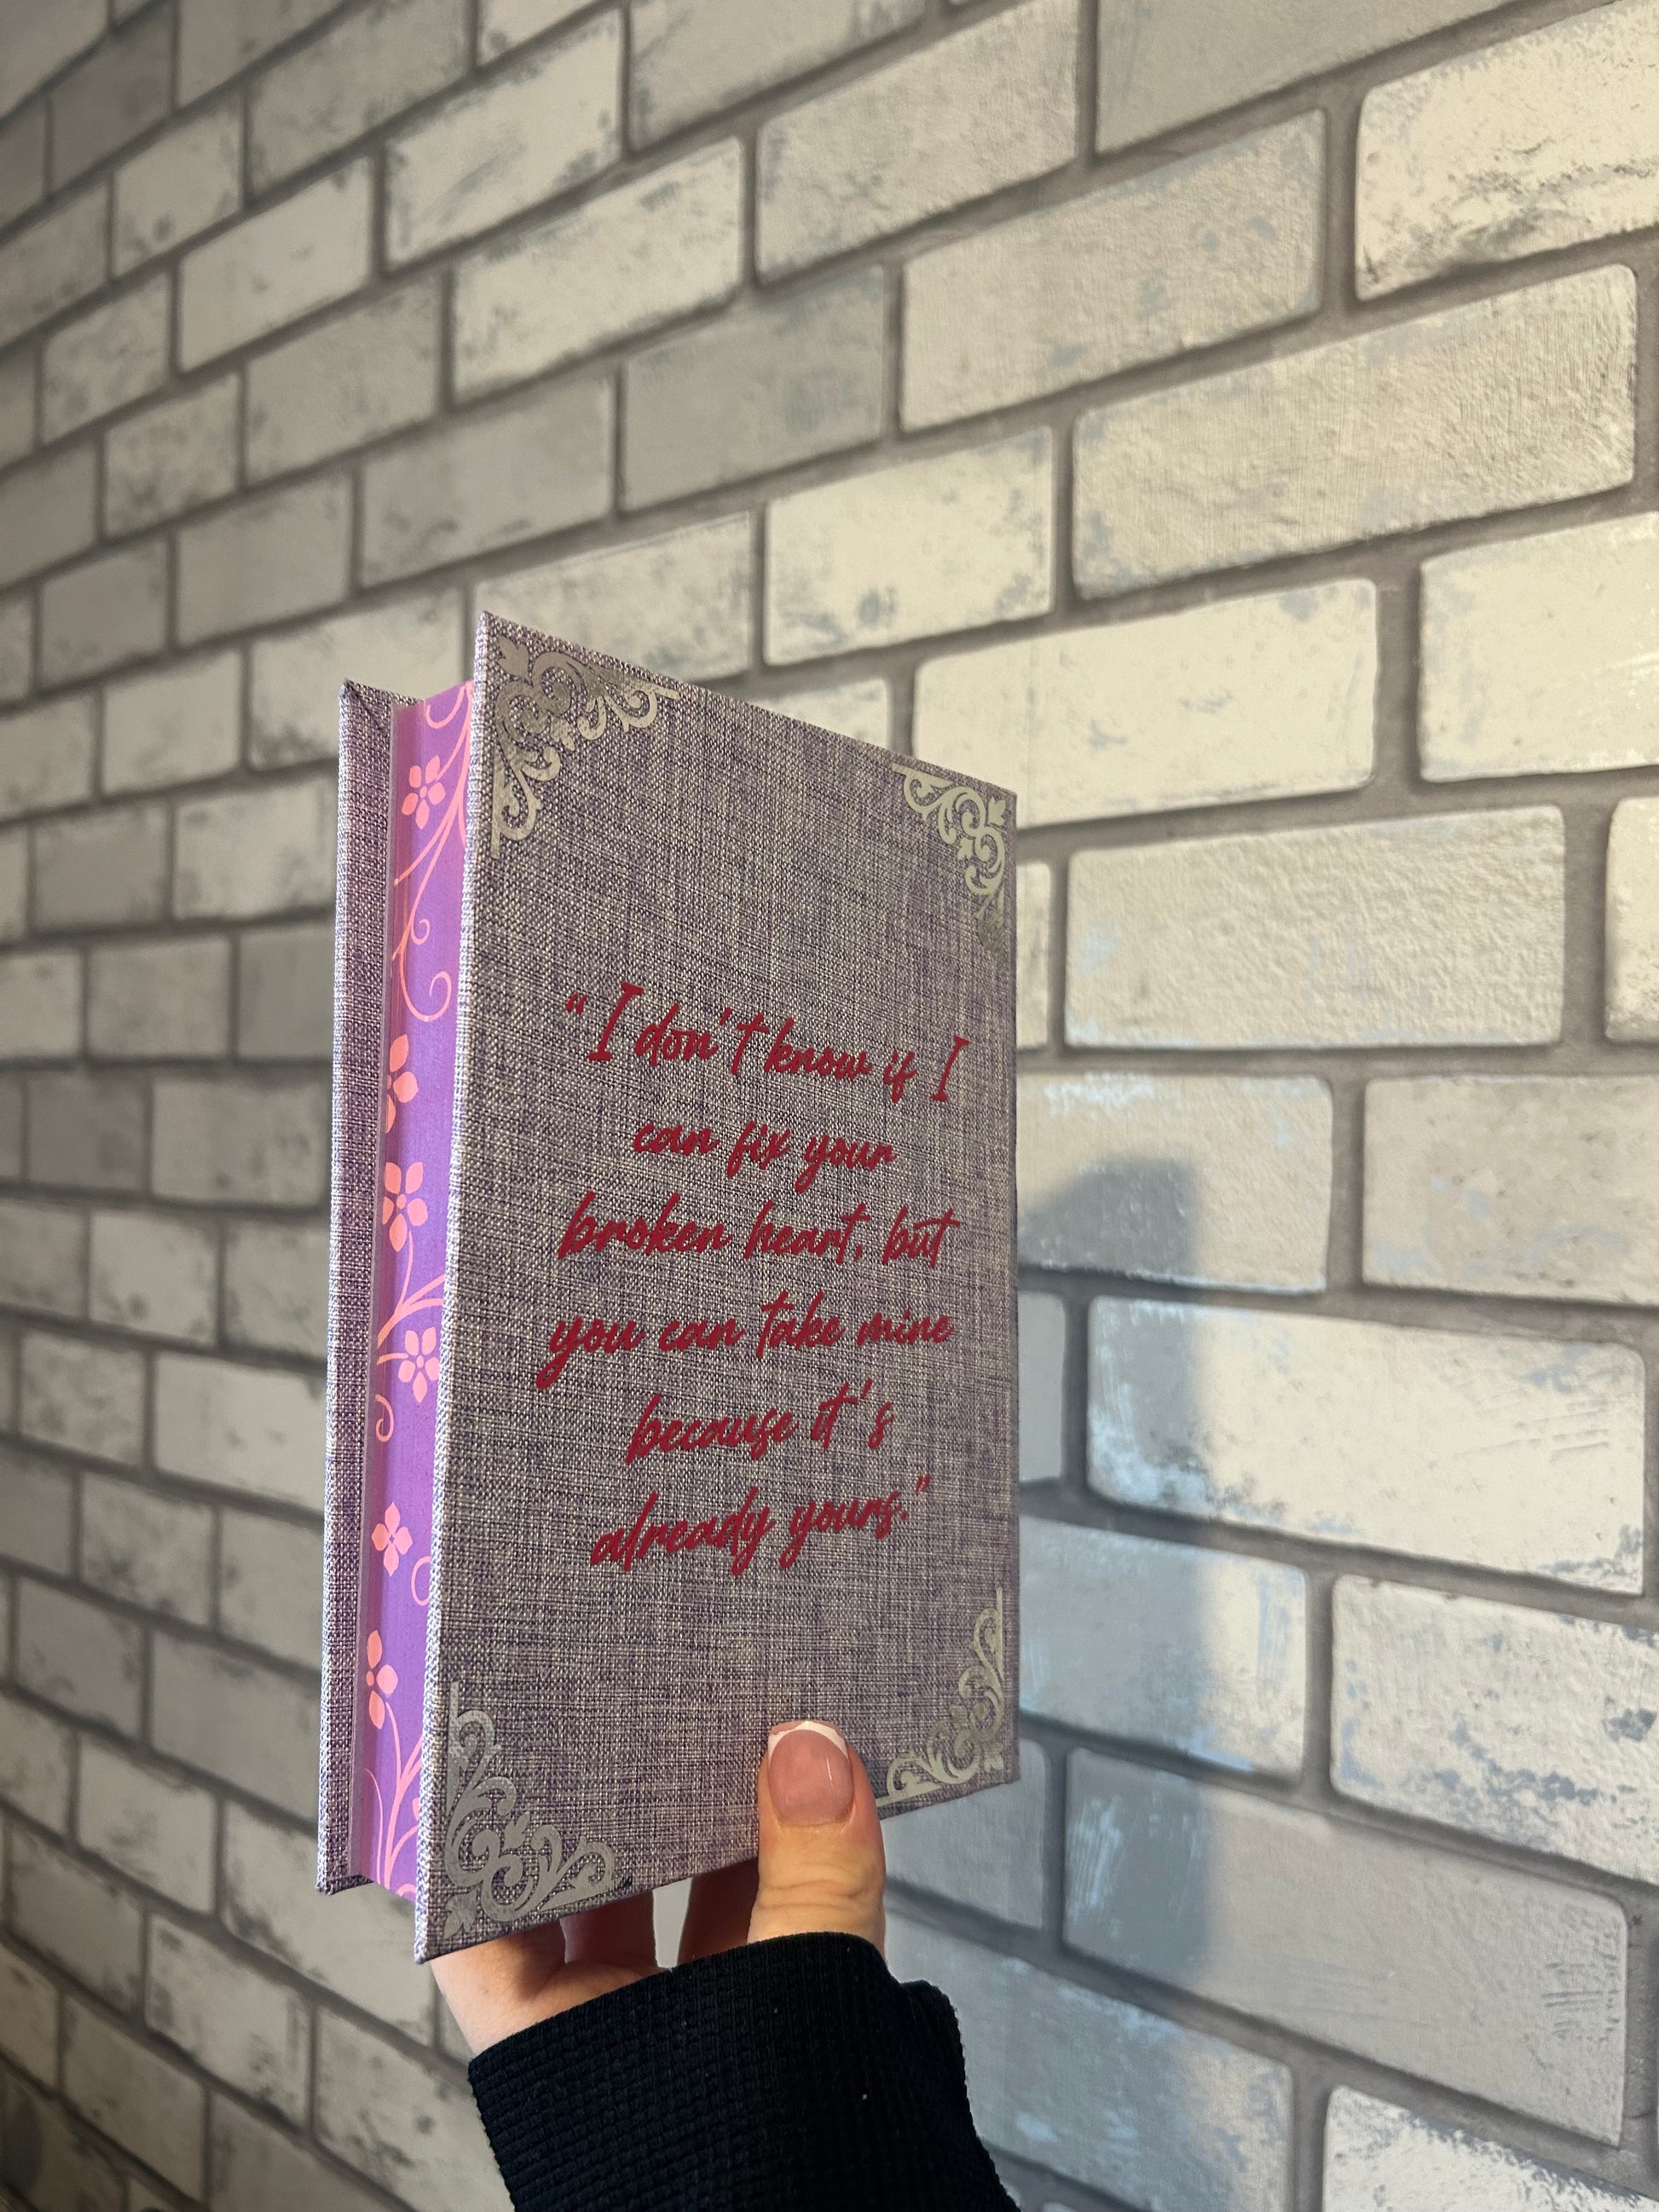 “I don't know if I
can fix your
broken heart, but
you can take mine
because it's
already yours.”